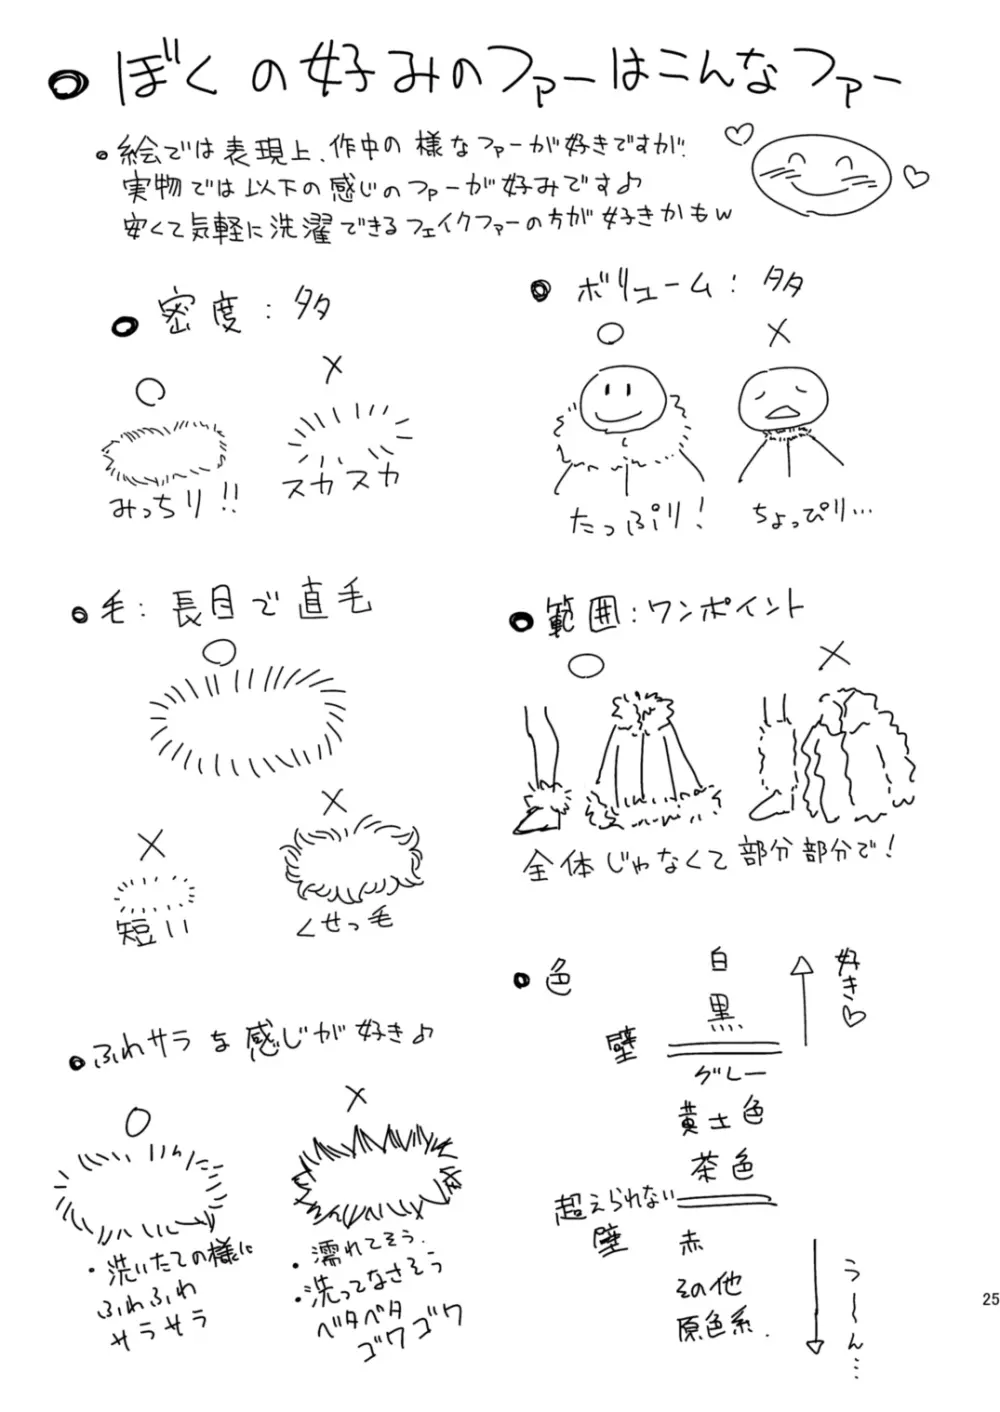 ぼくの好みのファーはこんなファー
・絵では表現上、作中の様なファーが好きですが、
実物では以下の感じのファーが好みです♪
安くて気軽に洗濯できるフェイクファーの方が好きかもw
密度:多
○
×
みっちり!!
スカスカ
ボリューム:多
○
×
たっぷり!
ちょっぴり…
毛:長目で直毛
○
×
×
短い
くせっ毛
範囲:ワンポイント
○
×
全体じゃなくて部分部分で!
ふわサラな感じが好き♪
○
×
・洗いたての様に
ふわふわ
サラサラ
・濡れてそう.
・洗ってなさそう
ベタベタ
ゴワゴワ
色
白
黒
壁
グレー
黄土色
茶色
超えられない
壁
赤
その他
原色系.
好き♡
う〜ん…
25